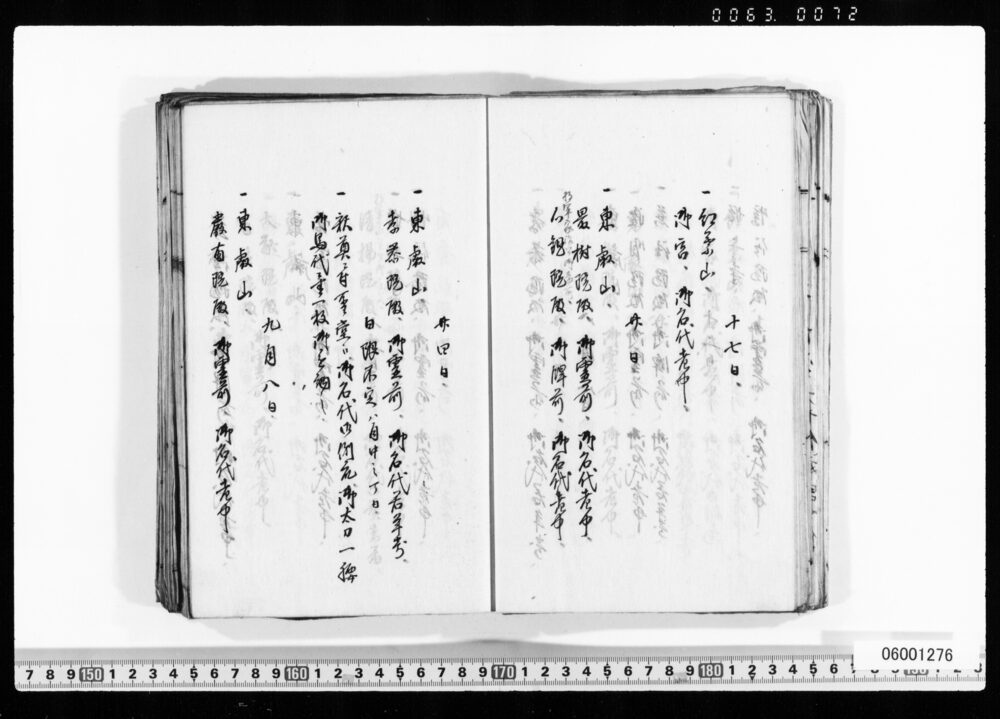 0063. 0072
十七日、
一 紅葉山、
御宮、御名代老中、
廿日
一 東叡山、
最樹院殿、御霊前、御名代老中、
心観院殿、御牌前、御名代老中、
廿四日、
一 東叡山、
孝恭院殿、御霊前、御名代若年寄、
日限不定八月中之丁日、
一 釈奠ニ付聖堂江御名代御側衆御太刀一腰
御馬代黄金一枚
九月八日、
一 東叡山、
厳有院殿、御霊前、御名代老中、
06001276
7 8 9 150 1 2 3 4 5 6 7 8 9 160 1 2 3 4 5 6 7 8 9 170 1 2 3 4 5 6 7 8 9 180 1 2 3 4 5 6